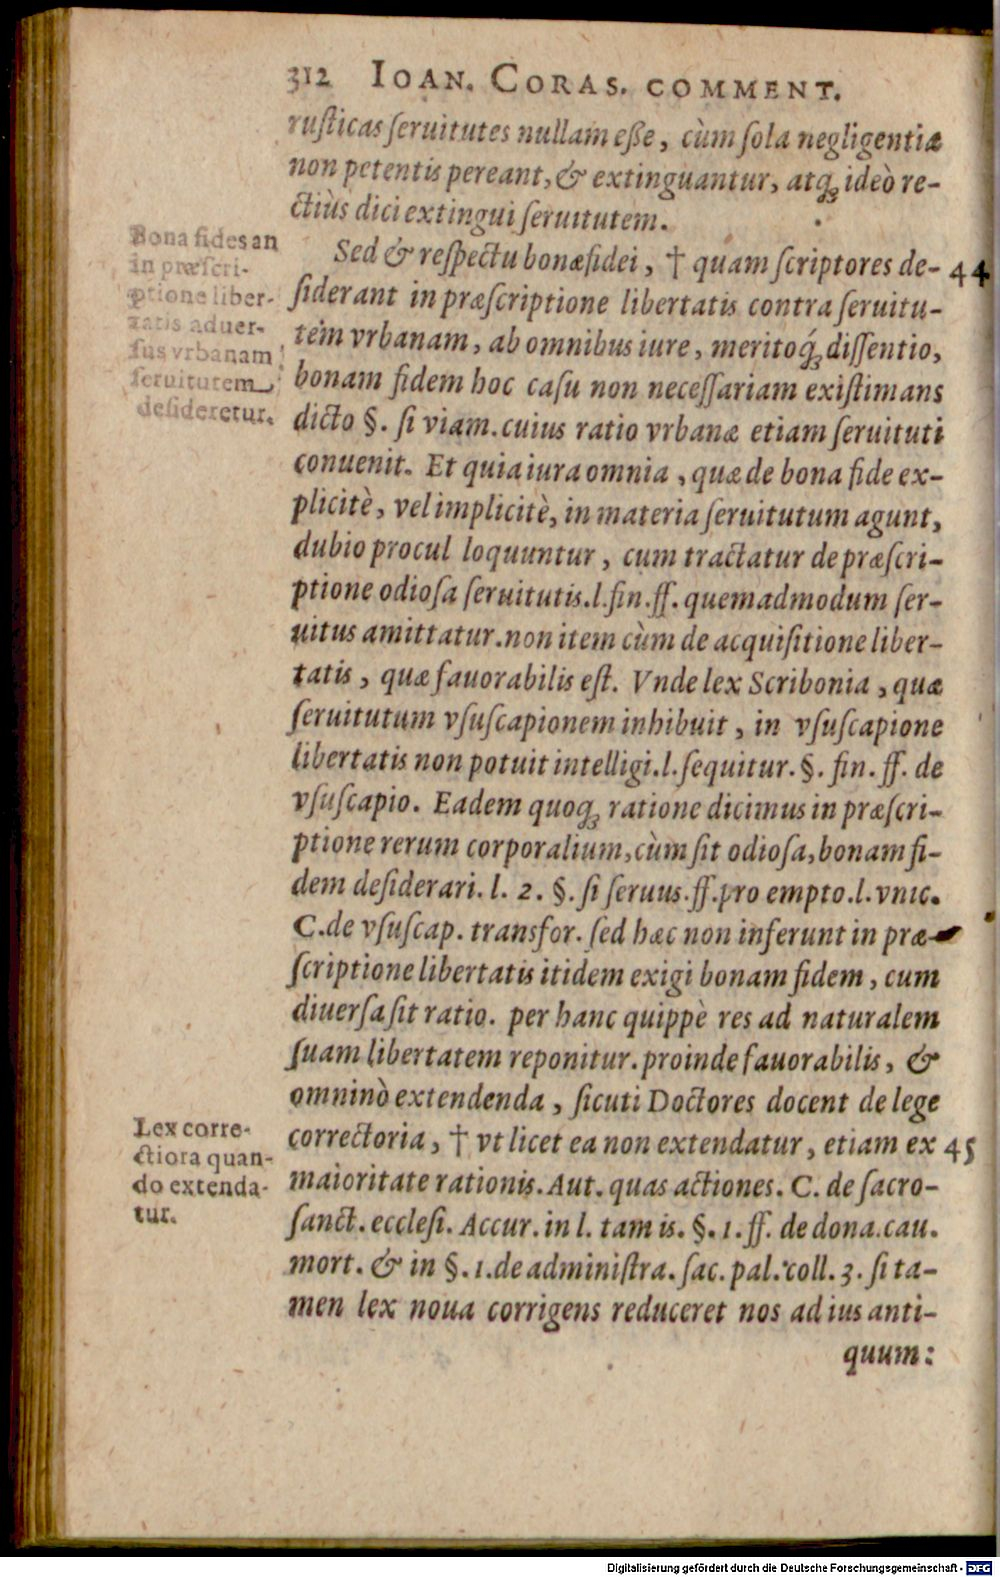 312 IOAN. CORAS. COMMENT.
rusticas ſeruitutes nullam eſse, cùm ſola negligentia
non petentis pereant, & extinguantur, atq; ideò re-
ctiùs dici extingui ſeruitutem.
Bona fides an
in præſcri-
ptione liber-
tatis aduer-
ſus vrbanam
ſeruitutem
deſideretur.
Sed & reſpectu bonæ fidei, † quam ſcriptores de- 44
ſiderant in præſcriptione libertatis contra ſeruitu-
tem vrbanam, ab omnibus iure, meritoq́; diſſentio,
bonam fidem hoc caſu non neceſſariam exiſtimans
dicto §. ſi viam. cuius ratio vrbanæ etiam ſeruituti
conuenit. Et quia iura omnia, quæ de bona fide ex-
plicitè, vel implicitè, in materia ſeruitutum agunt,
dubio procul loquuntur, cum tractatur de præſcri-
ptione odioſa ſeruitutis. l. fin. ff. quemadmodum ſer-
uitus amittatur. non item cùm de acquiſitione liber-
tatis, quæ fauorabilis eſt. Vnde lex Scribonia, quæ
ſeruitutum vſuſcapionem inhibuit, in vſuſcapione
libertatis non potuit intelligi. l. ſequitur. §. fin. ff. de
vſuſcapio. Eadem quoq; ratione dicimus in præſcri-
ptione rerum corporalium, cùm ſit odioſa, bonam fi-
dem deſiderari. l. 2. §. ſi ſeruus. ff. pro empto. l. vnic.
C. de vſuſcap. transfor. ſed hæc non inferunt in præ-
ſcriptione libertatis itidem exigi bonam fidem, cum
diuerſa ſit ratio. per hanc quippè res ad naturalem
ſuam libertatem reponitur. proinde fauorabilis, &
omninò extendenda, ſicuti Doctores docent de lege
Lex corre-
ctiora quan-
do extenda-
tur.
correctoria, † vt licet ea non extendatur, etiam ex 45
maioritate rationis. Aut. quas actiones. C. de ſacro-
ſanct. eccleſi. Accur. in l. tam is. §. 1. ff. de dona. cau.
mort. & in §. 1. de adminiſtra. ſac. pal. coll. 3. ſi ta-
men lex noua corrigens reduceret nos ad ius anti-
quum:
Digitalisierung gefördert durch die Deutsche Forschungsgemeinschaft - DFG